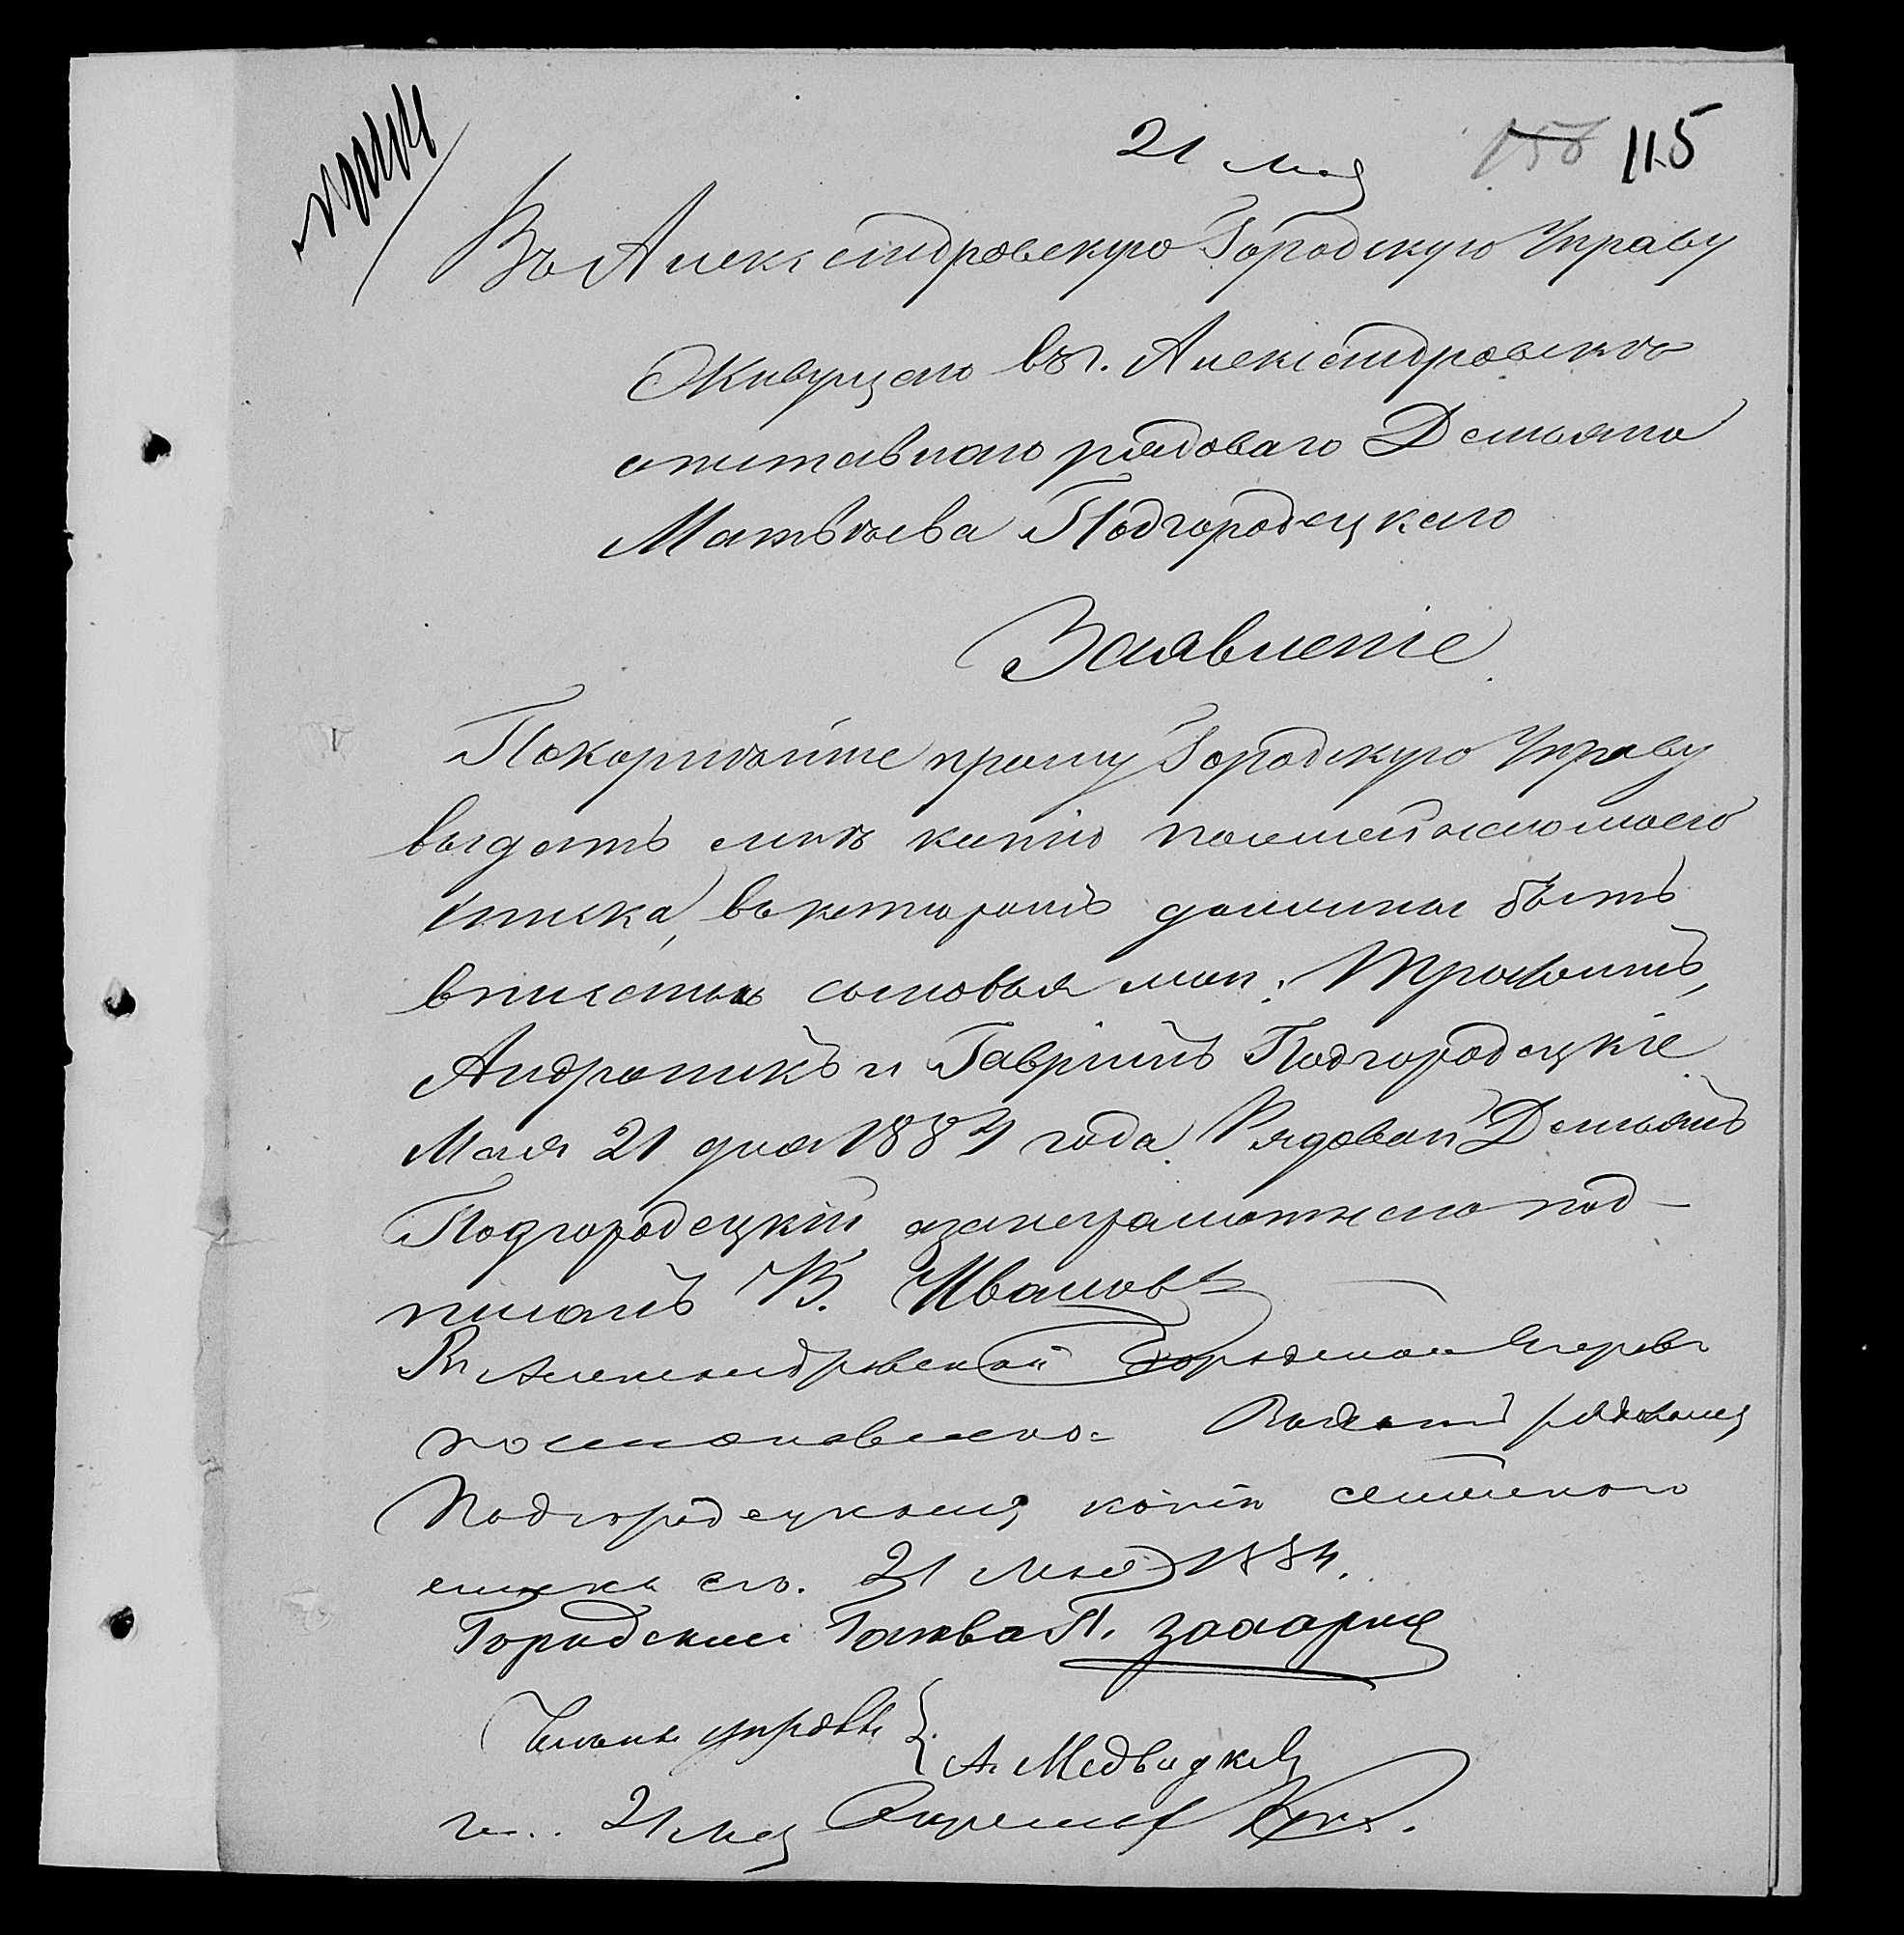 21 мая 158 115
Въ Александровскую Городскую Управу
Живущаго въ г. Александровскѣ
отставнаго рядоваго Демьяна
Матвѣева Подгородецкаго
Заявленіе
Покорнѣйше прошу Городскую Управу
выдать мнѣ копію посемейного моего
списка, въ которомъ должны быть
вписаны сыновья мои: Трофимъ,
Андроникъ и Гавріилъ Подгородецкіе.
Мая 21 дня 1884 года. Рядовой Демьянъ
Подгородецкій а за неграмотнаго под-
писалъ В. Ивановъ
Въ Александровской Городской Управѣ
постановлено: Выдать рядовому
Подгородецкому копію семейного
списка его. 21 мая 1884.
Городской Голова П. Захарин
Члены управы { А. Медведкев
21 мая Секретарь